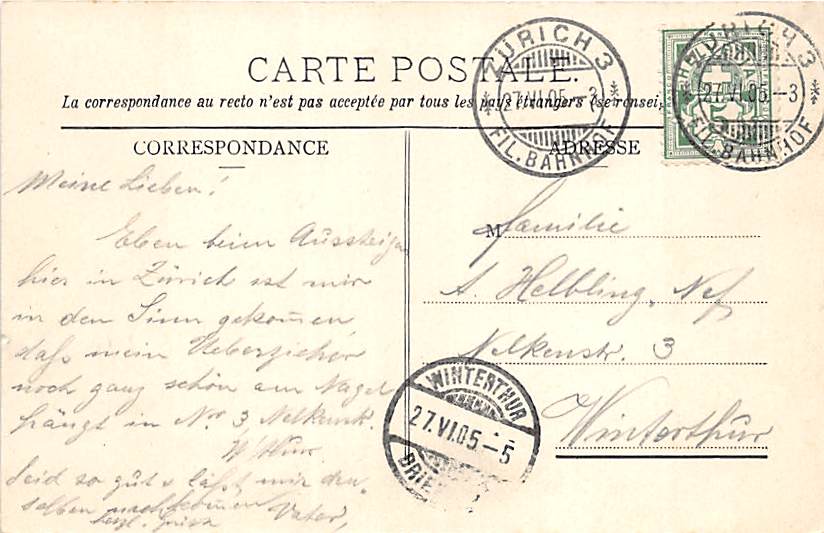 CARTE POSTALE.
La correspondance au recto n'est pas acceptée par tous les pays étrangers (se rensei
ZÜRICH 3
27.VI.05.–3
FIL. BAHNHOF
ZÜRICH 3
27.VI.05.–3
FIL. BAHNHOF
CORRESPONDANCE
ADRESSE
Meine Lieben!
Eben beim Aussteigen
hier in Zürich ist mir
in den Sinn gekom̄en,
daſs mein Ueberzieher
noch ganz schön am Nagel
hängt in Nro 3, Nelkenstr.
W'thur.
Seid so gut & laſst mir den
selben nachkom̄en
herzl. Gruss Vater,
M Familie
A. Helbling, Nef
Nelkenstr. 3
Winterthur
WINTERTHUR
27.VI.05.–5
BRIE